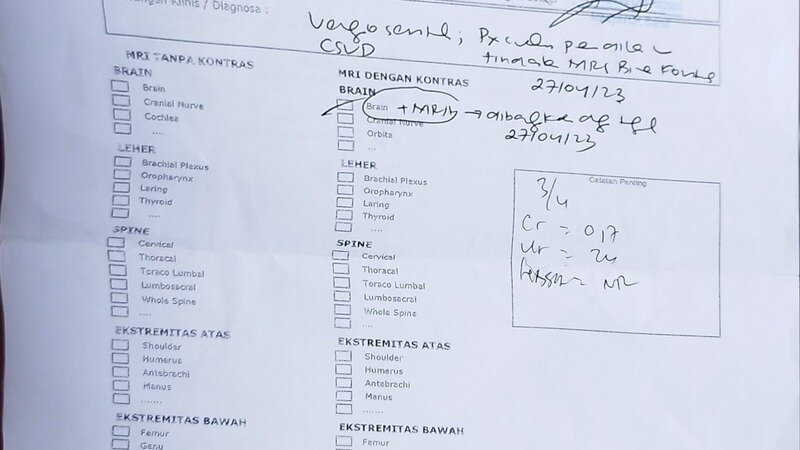 Klinis / Diagnosa :
CSVD
tindak MRI
27/04/23
MRI TANPA KONTRAS
BRAIN
Brain
Cranial Nerve
Cochlea
....
LEHER
Brachial Plexus
Oropharynx
Laring
Thyroid
....
SPINE
Cervical
Thoracal
Toraco Lumbal
Lumbosacral
Whole Spine
....
EKSTREMITAS ATAS
Shoulder
Humerus
Antebrachi
Manus
.......
EKSTREMITAS BAWAH
Femur
Genu
MRI DENGAN KONTRAS
BRAIN
Brain + MRA
Cranial Nurve
Orbita
...
27/04/23
LEHER
Brachial Plexus
Oropharynx
Laring
Thyroid
....
SPINE
Cervical
Thoracal
Toraco Lumbal
Lumbosacral
Whole Spine
....
EKSTREMITAS ATAS
Shoulder
Humerus
Antebrachi
Manus
.......
EKSTREMITAS BAWAH
Femur
Catatan Penting
3/4
Cr = 0,7
Ur = 24